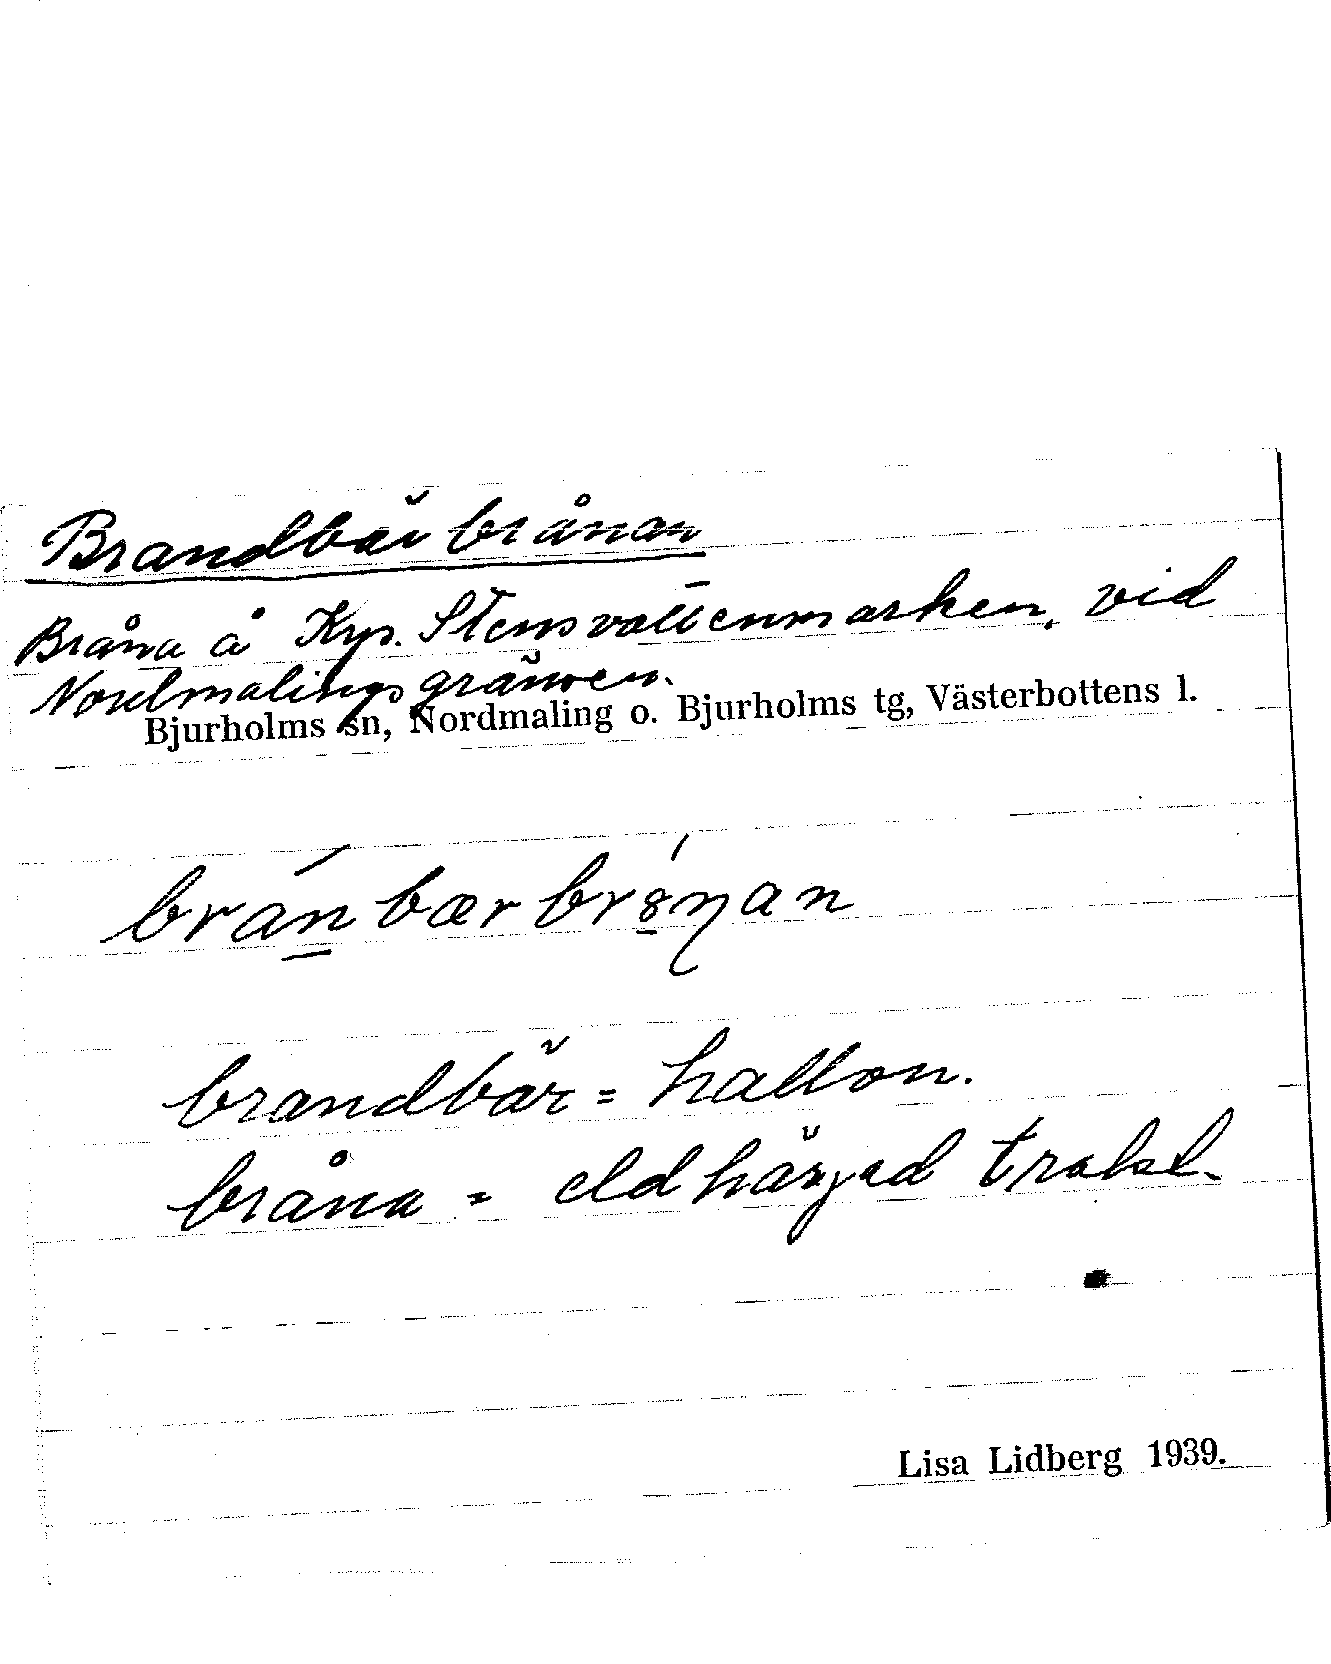 Brandbärbrånan
Bråna å Krp. Stensvattenmarken, vid
Nordmalingsgränsen.
Bjurholms sn, Nordmaling o. Bjurholms tg, Västerbottens l.
brandbär = hallon.
bråna = eldhärjad trakt.
Lisa Lidberg 1939.